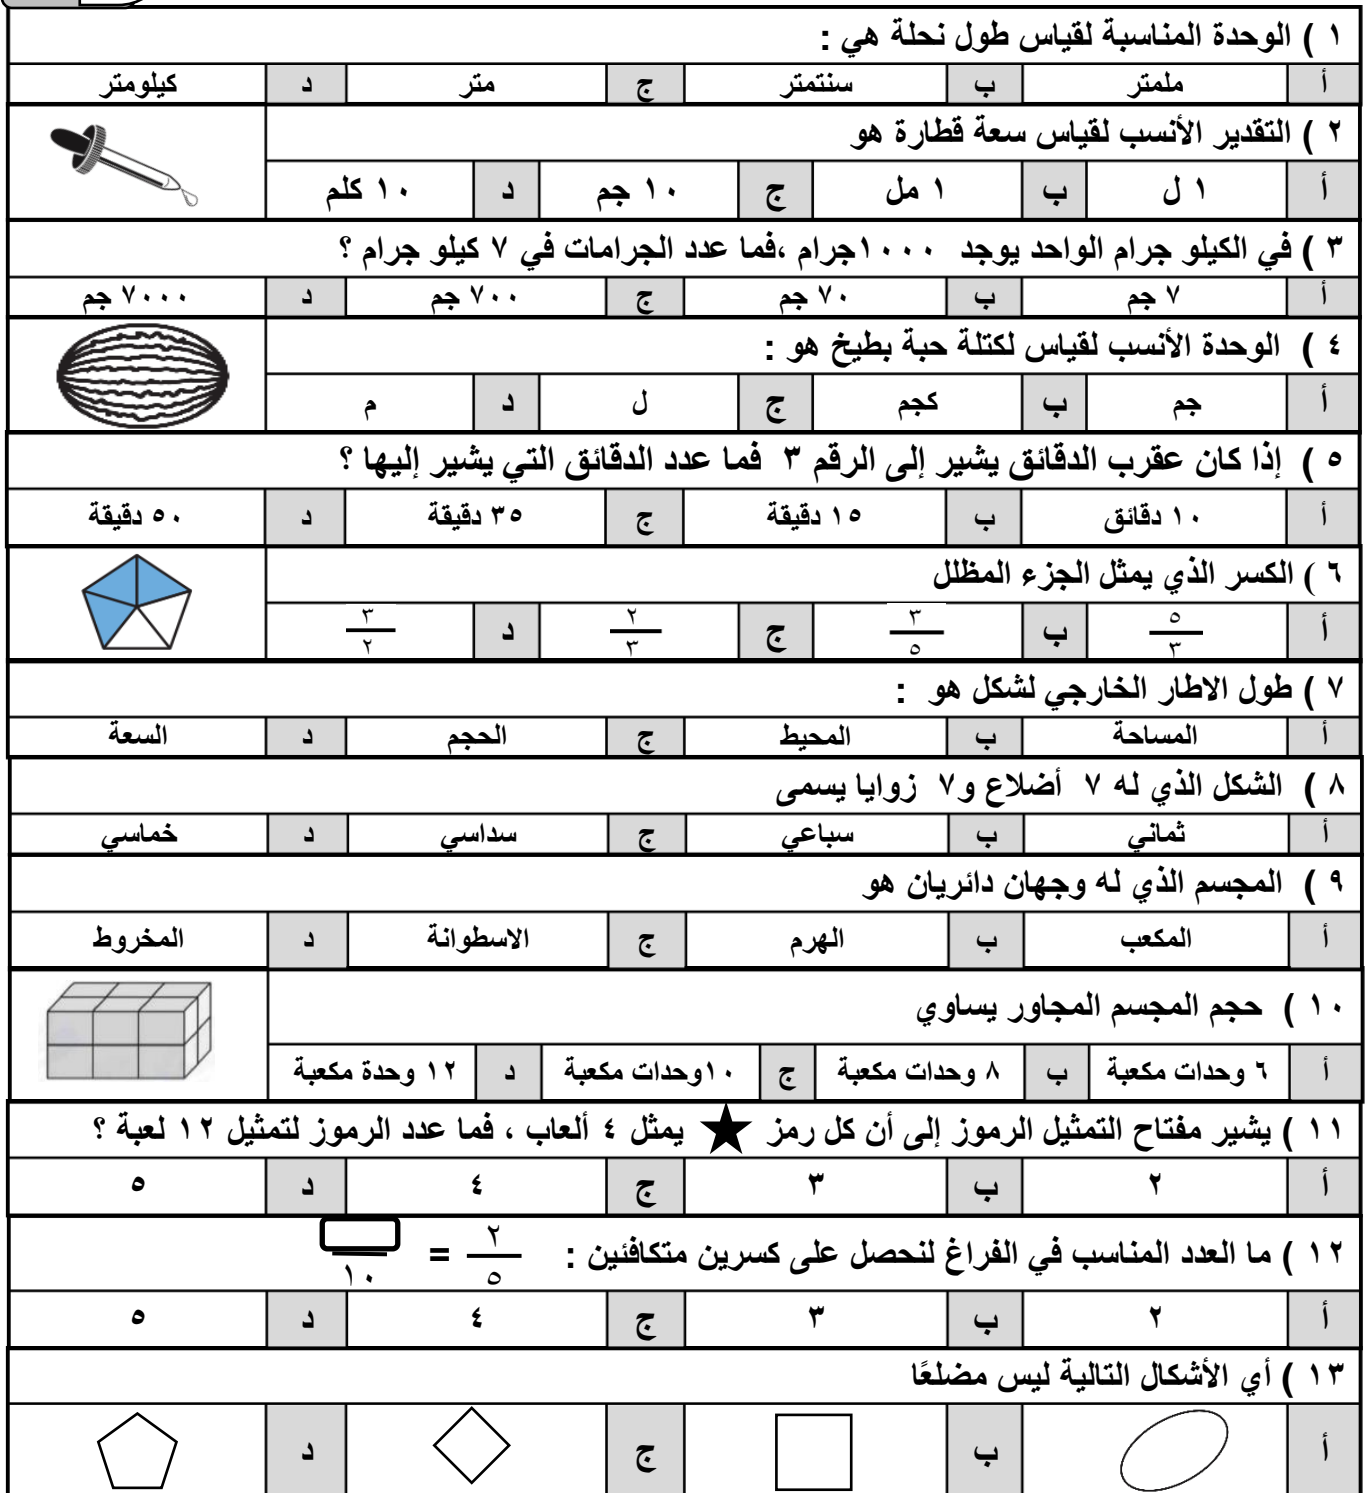 ١ ) الوحدة المناسبة لقياس طول نحلة هي :
أ ملمتر ب سنتمتر ج متر د كيلومتر
٢ ) التقدير الأنسب لقياس سعة قطارة هو
أ ١ ل ب ١ مل ج ١٠ جم د ١٠ كلم
٣ ) في الكيلو جرام الواحد يوجد ١٠٠٠جرام ،فما عدد الجرامات في ٧ كيلو جرام ؟
أ ٧ جم ب ٧٠ جم ج ٧٠٠ جم د ٧٠٠٠ جم
٤ ) الوحدة الأنسب لقياس لكتلة حبة بطيخ هو :
أ جم ب كجم ج ل د م
٥ ) إذا كان عقرب الدقائق يشير إلى الرقم ٣ فما عدد الدقائق التي يشير إليها ؟
أ ١٠ دقائق ب ١٥ دقيقة ج ٣٥ دقيقة د ٥٠ دقيقة
٦ ) الكسر الذي يمثل الجزء المظلل
أ ٥/٣ ب ٣/٥ ج ٢/٣ د ٣/٢
٧ ) طول الاطار الخارجي لشكل هو :
أ المساحة ب المحيط ج الحجم د السعة
٨ ) الشكل الذي له ٧ أضلاع و٧ زوايا يسمى
أ ثماني ب سباعي ج سداسي د خماسي
٩ ) المجسم الذي له وجهان دائريان هو
أ المكعب ب الهرم ج الاسطوانة د المخروط
١٠ ) حجم المجسم المجاور يساوي
أ ٦ وحدات مكعبة ب ٨ وحدات مكعبة ج ١٠وحدات مكعبة د ١٢ وحدة مكعبة
١١ ) يشير مفتاح التمثيل الرموز إلى أن كل رمز ★ يمثل ٤ ألعاب ، فما عدد الرموز لتمثيل ١٢ لعبة ؟
أ ٢ ب ٣ ج ٤ د ٥
١٢ ) ما العدد المناسب في الفراغ لنحصل على كسرين متكافئين : ٢/٥ = /١٠
أ ٢ ب ٣ ج ٤ د ٥
١٣ ) أي الأشكال التالية ليس مضلعًا
أ ب ج د